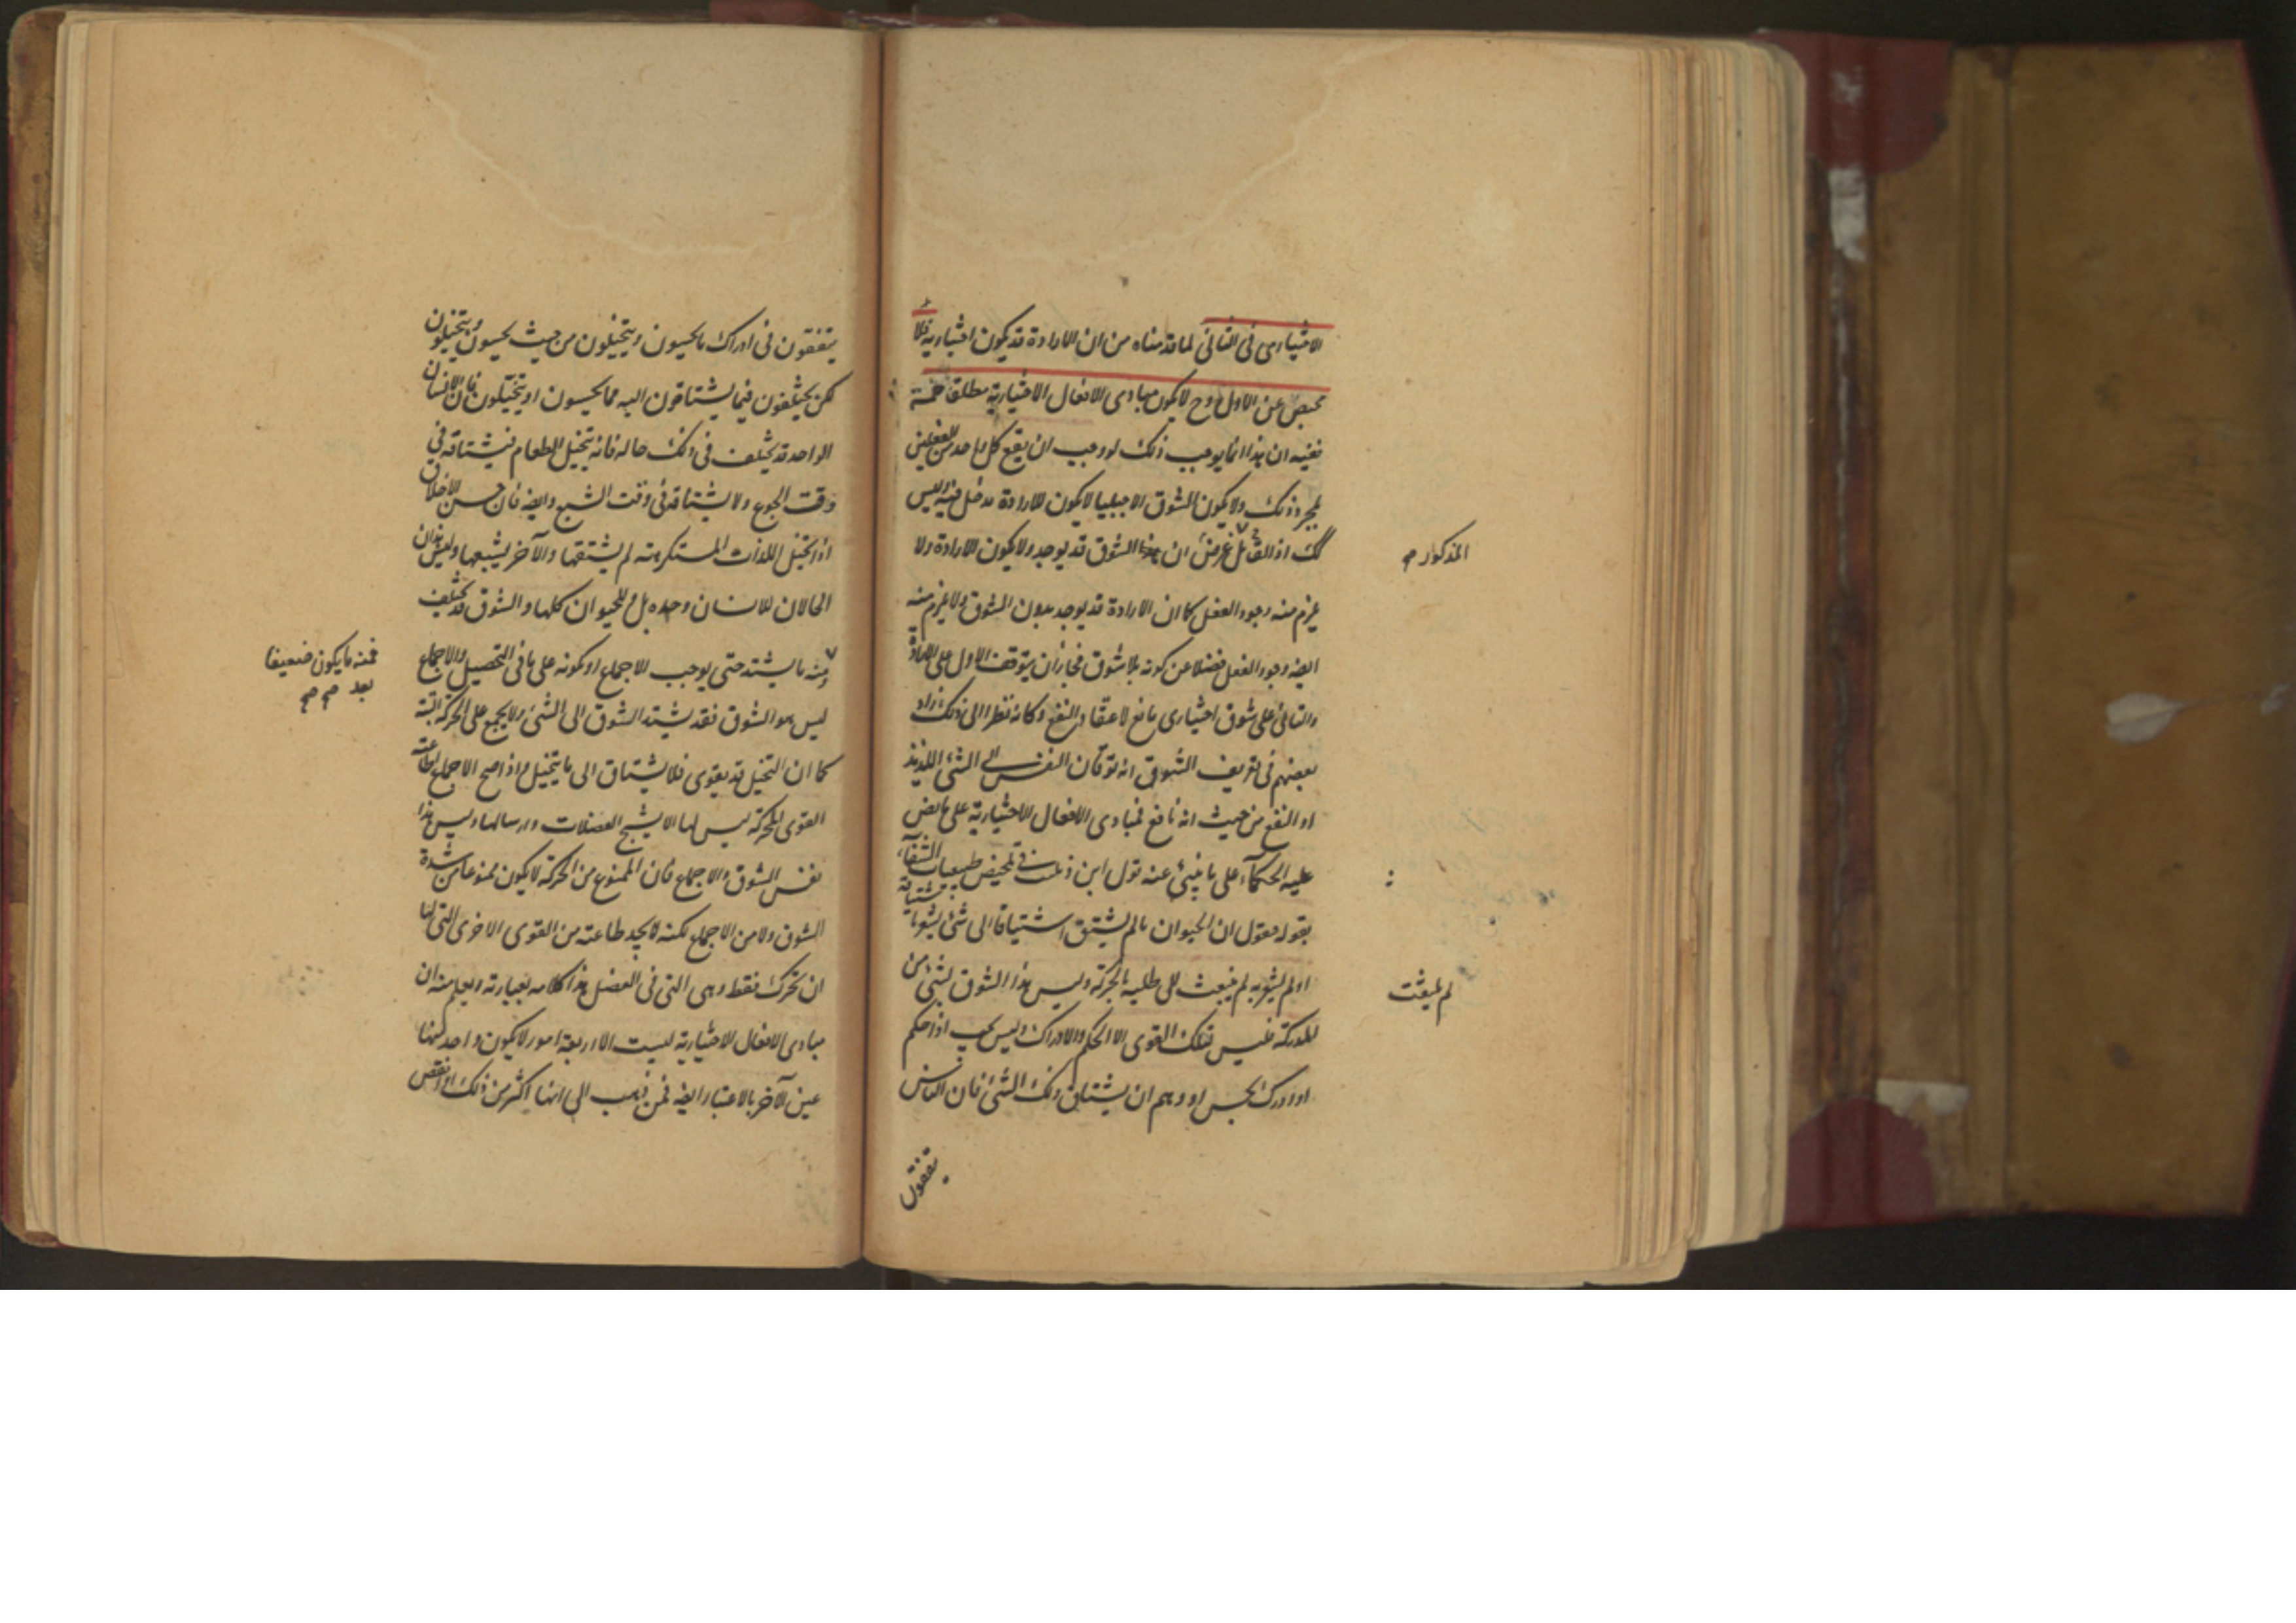 الاختيارى فى الثانى لما قدمناه من ان الارادة قد يكون اختيارية فلا
محيص عن الاول وح لا يكون مبادى الافعال الاختيارية مطلقا خمسة
ففيه ان هذا انما يوجب ذلك لو وجب ان يقع كل واحد من الفعلين
بمجرد ذلك ولا يكون الشوق الا جبليا لا يكون للارادة مدخل فيه وليس
كك اذ القائل غرضه ان الشوق قد يوجد ولا يكون للارادة ولا
المذكور صح
يلزم منه وجود الفعل كما ان الارادة قد يوجد بدون الشوق ولا يلزم منه
ايضا وجود الفعل فضلا عن كونه بلا شوق فجاز ان يتوقف الاول على الارادة
والثانى على شوق اختيارى تابع لاعتقاد النفع وكانه نظر الى ذلك زاد
بعضهم فى تعريف الشوق انه توقان النفس الى الشئ اللذيذ
او النفع من حيث انه نافع فمبادى الافعال الاختيارية على ما نص
عليه الحكمآء على ما ينبئ عنه قول ابن فى تلخيص طبيعيات الشفآء
بقوله فنقول ان الحيوان ما لم يشتق اشتياقا الى شئ يشعر باشتياقه
او لم يشعر به لم ينبعث الى طلبه بالحركة وليس هذا الشوق لشئ من
لم ينبعث
المدركة فليس لتلك القوى الا الحكم والادراك وليس يجب اذا حكم
او ادرك بحس او وهم ان يشتاق ذلك الشئ فان الناس
يتفقون
يتفقون فى ادراك ما يحسون ويتخيلون من حيث يحسون ويتخيلون
لكن يختلفون فيما يشتاقون اليه مما يحسون او يتخيلون فان الانسان
الواحد قد يختلف فى ذلك حاله فانه يتخيل الطعام فيشتاقه فى
وقت الجوع ولا يشتاقه فى وقت الشبع وايضا فان حسن الاخلاق
اذا تخيل اللذات المستكرهة لم يشتقها والآخر يشتهيها وليس هذان
الحالان للانسان وحده بل وللحيوان كلها والشوق قد يختلف
فمنه ما يكون ضعيفا
بعد صح صح
ومنه ما يشتد حتى يوجب الاجماع او كونه على ما فى التحصيل والاجماع
ليس هو الشوق فقد يشتد الشوق الى الشئ ولا يجمع على الحركة البتة
كما ان التخيل قد يقوى فلا يشتاق الى ما يتخيل واذا صح الاجماع اطاعته
القوى المحركة ليس لها الا تشنيج العضلات وارسالها وليس هذا
نفس الشوق والاجماع فان الممنوع من الحركة لا يكون ممنوعا من شدة
الشوق ولا من الاجماع لكنه لا يجد طاعته من القوى الاخرى التى لها
ان تحرك فقط وهى التى فى العضل هذا كلامه بعبارته ويعلم منه ان
مبادى الافعال الاختيارية ليست الا اربعة امور لا يكون واحد منها
عين الآخر بالاعتبار ايضا فمن ذهب الى انها اكثر من ذلك او انقص